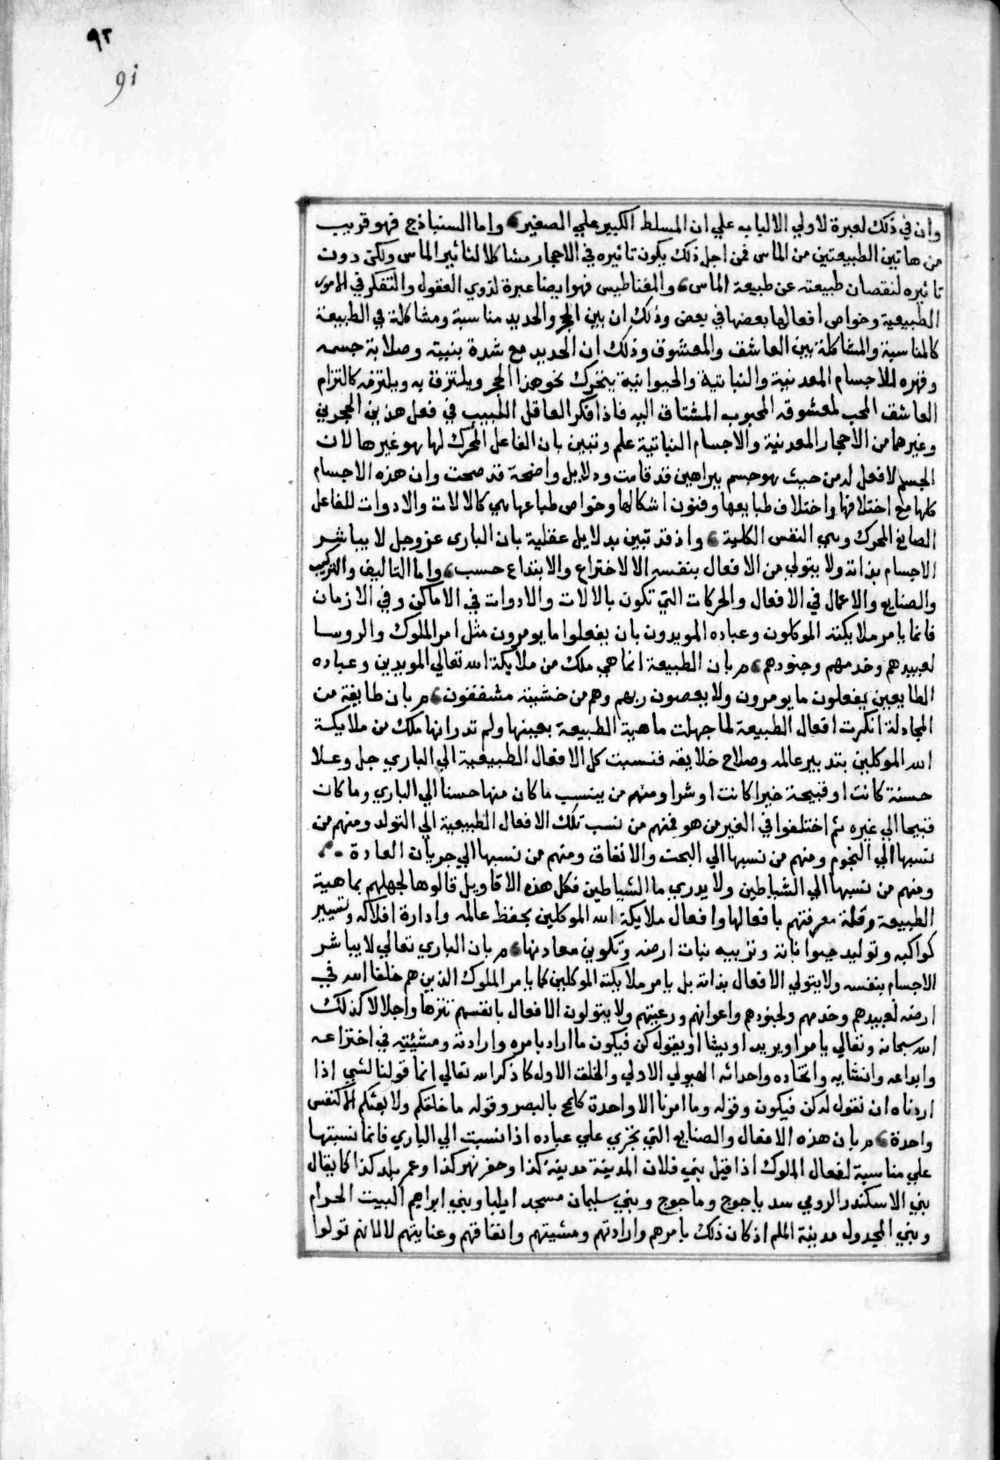 ٩٢
91
وان في ذلك لعبرة لاولي الالباب علي ان المسلط الكبير علي الصغير واما السنباذج فهو قريب
من هاتين الطبيعتين من الماس فمن اجل ذلك يكون تاثيره في الاحجار مشاكلا لتاثير الماس ولكن دون
تاثيره لنقصان طبيعته عن طبيعة الماس والمغناطيس فهو ايضا عبرة لذوي العقول والتفكر في الامور
الطبيعية وخواص افعالها بعضها في بعض وذلك ان بين الحجر والحديد مناسبة ومشاكلة في الطبيعة
كالمناسبة والمشاكلة بين العاشق والمعشوق وذلك ان الحديد مع شدة بنيته وصلابة جسمه
وقهره للاجسام المعدنية والنباتية والحيوانية يتحرك نحو هذا الحجر ويلتزق به ويلتزمه كالتزام
العاشق المحب لمعشوقه المحبوب المشتاق اليه فاذا فكر العاقل اللبيب في فعل هذين الحجرين
وغيرهما من الاحجار المعدنية والاجسام النباتية علم وتبين بان الفاعل المحرك لها هو غيرها لان
الجسم لا فعل له من حيث هو جسم ببراهين قد قامت ودلايل واضحة قد صحت وان هذه الاجسام
كلها مع اختلافها واختلاف طبايعها وفنون اشكالها وخواص طباعها هي كالالات والادوات للفاعل
الصانع المحرك وهي النفس الكلية واذ قد تبين بدلايل عقلية بان الباري عز وجل لا يباشر
الاجسام بذاته ولا يتولي من الافعال بنفسه الا الاختراع والابتداع حسب واما التاليف والتركيب
والصنايع والاعمال في الافعال والحركات التي تكون بالالات والادوات في الاماكن وفي الازمان
فانما يامر ملايكته الموكلون وعباده المويدون بان يفعلوا ما يومرون مثل امر الملوك والروسا
لعبيدهم وخدمهم وجنودهم م بان الطبيعة انما هي ملك من ملايكة الله تعالي المويدين وعباده
الطايعين يفعلون ما يومرون ولا يعصون ربهم وهم من خشيته مشفقون م بان طايفة من
المجادلة انكرت افعال الطبيعة لما جهلت ماهية الطبيعة بعينها ولم تدر انها ملك من ملايكة
الله الموكلين بتدبير عالمه وصلاح خلايقه فنسبت كل الافعال الطبيعية الي الباري جل وعلا
حسنة كانت او قبيحة خيرا كانت او شرا ومنهم من ينسب ما كان منها حسنا الي الباري وما كان
قبيحا الي غيره ثم اختلفوا في الغير من هو فمنهم من نسب تلك الافعال الطبيعية الي التولد ومنهم من
نسبها الي النجوم ومنهم من نسبها الي البخت والاتفاق ومنهم من نسبها الي جريان العادة
ومنهم من نسبها الي الشياطين ولا يدري ما الشياطين فكل هذه الاقاويل قالوها لجهلهم بماهية
الطبيعة وقلة معرفتهم بافعالها وافعال ملايكة الله الموكلين بحفظ عالمه وادارة افلاكه وتسيير
كواكبه وتوليد حيواناته وتربيه نبات ارضه وتكوين معادنها م بان الباري تعالي لا يباشر
الاجسام بنفسه ولا يتولي الافعال بذاته بل يامر ملايكته الموكلين كما يامر الملوك الذين هم خلفا الله في
ارضه لعبيدهم وخدمهم ولجنودهم واعوانهم ورعيتهم ولا يتولون الافعال بانفسهم تنزها واجلالا كذلك
الله سبحانه وتعالي يامر او يريد او يشا او يقول كن فيكون ما اراد بامره وارادته ومشيئته في اختراعه
وابداعه وانشايه واتحاده واحداثه الهيولي الاولي والخلق الاول كما ذكر الله تعالي انما قولنا لشي اذا
اردناه ان نقول له كن فيكون وقوله وما امرنا الا واحدة كلمح بالبصر وقوله ما خلقكم ولا بعثكم الا كنفس
واحدة م بان هذه الافعال والصنايع التي تجري علي عباده اذا نسبت الي الباري فانما نسبتها
علي مناسبة لفعال الملوك اذا قيل بني فلان المدينة مدينة كذا وحفر نهر كذا وعمر بلد كذا كما يقال
بني الاسكندر الرومي سد ياجوج وماجوج وبني سليمان مسجد ايليا وبني ابراهيم البيت الحرام
وبني مدينة اذ كان ذلك بامرهم وارادتهم ومشيتهم واتفاقهم وعنايتهم لا لانهم تولوا